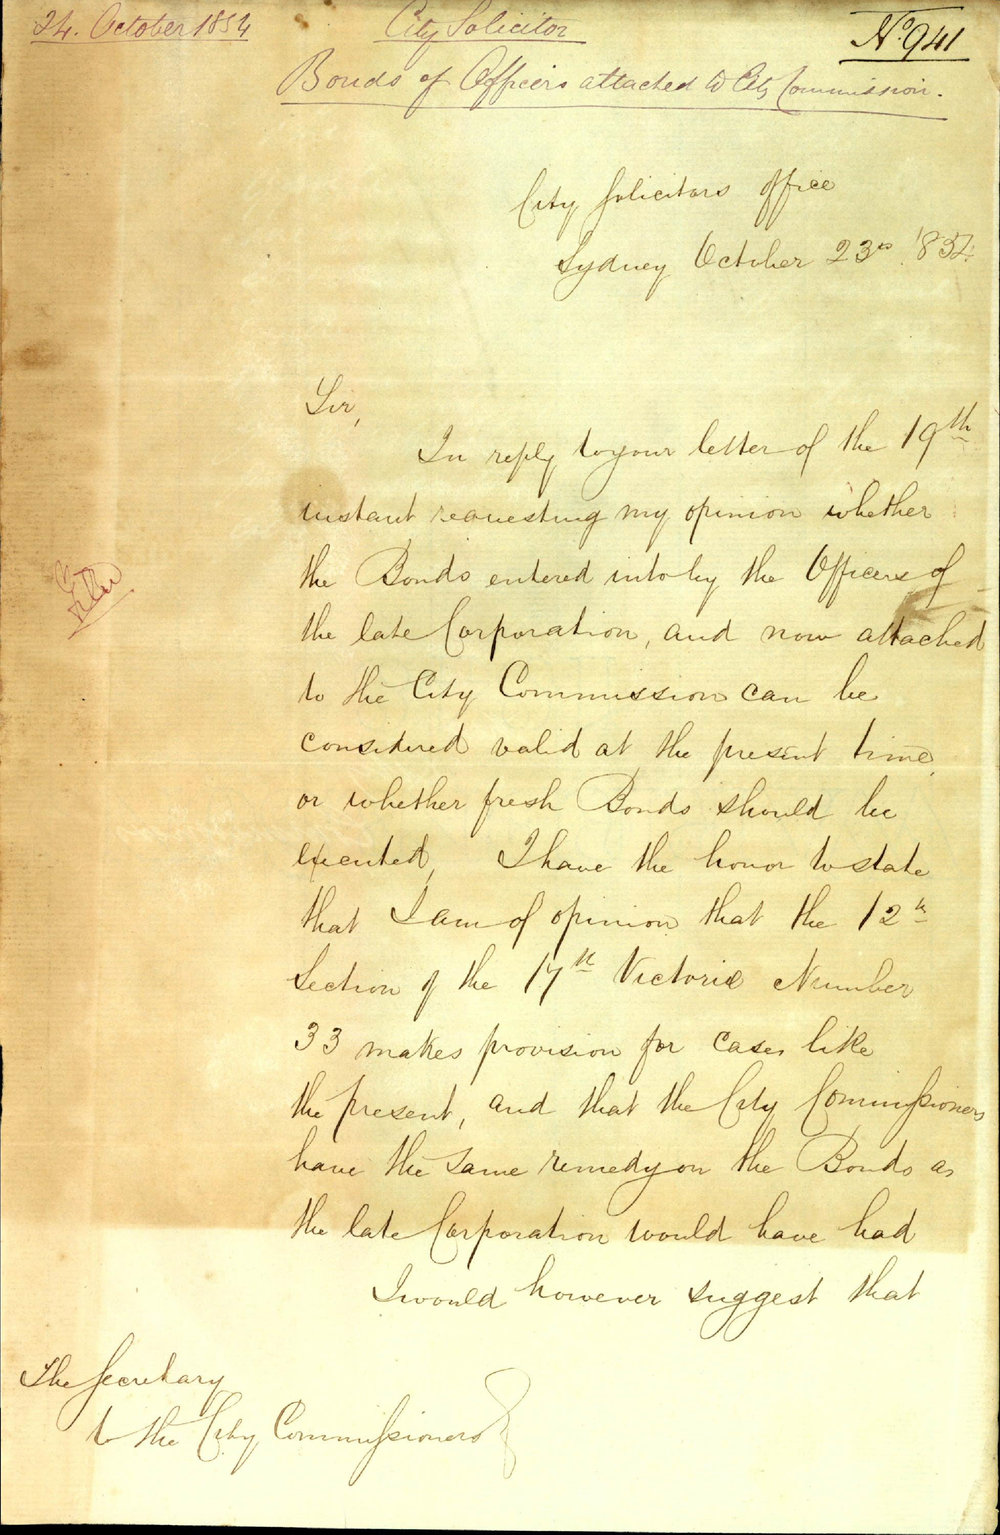 24. October 1854
City Solicitor
No. 941
Bonds of Officers attached to City Commission.
City Solicitors Office
Sydney October 23rd 1854
Sir,
In reply to your letter of the 19th
instant requesting my opinion whether
the Bonds entered into by the Officers of
the late Corporation, and now attached
to the City Commission can be
considered valid at the present time,
or whether fresh Bonds should be
executed, I have the honor to state
that I am of opinion that the 12th
Section of the 17th Victoria Number
33 makes provision for cases like
the present, and that the City Commissioners
have the same remedy on the Bonds as
the late Corporation would have had
I would however suggest that
The Secretary
to the City Commissioners